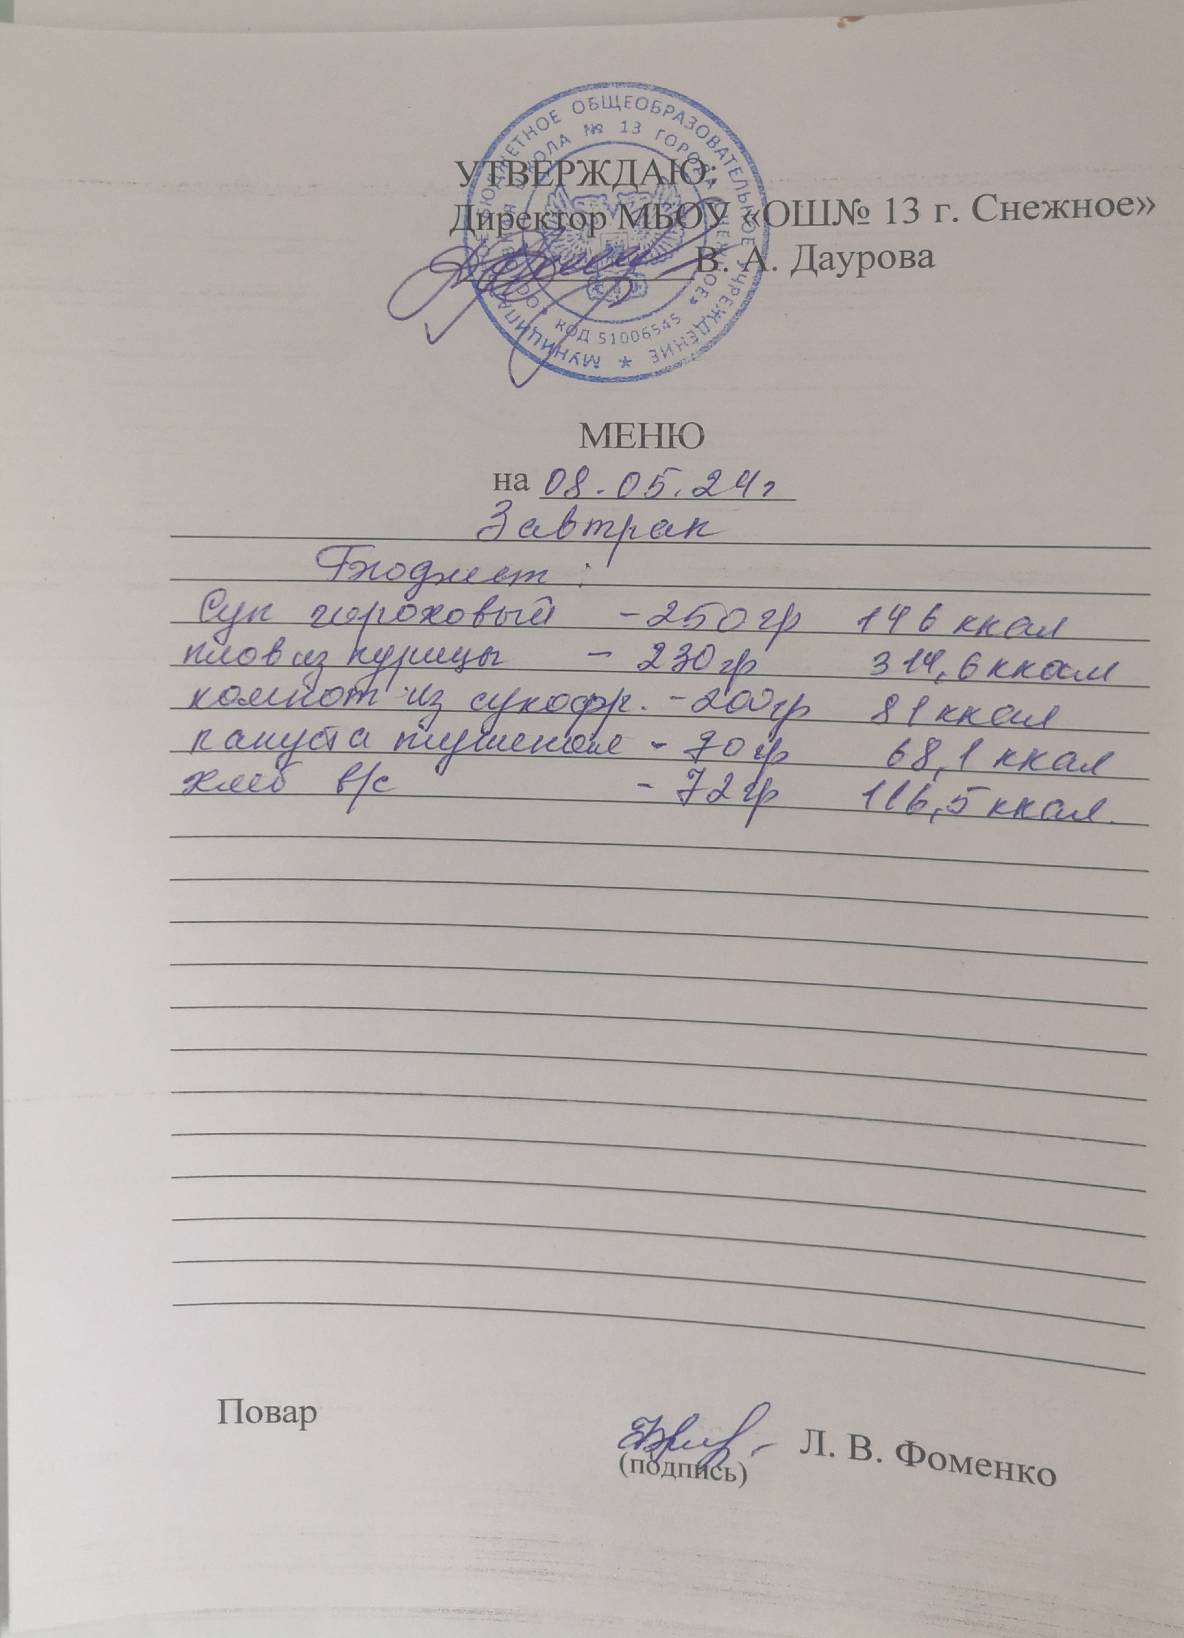 МУНИЦИПАЛЬНОЕ БЮДЖЕТНОЕ ОБЩЕОБРАЗОВАТЕЛЬНОЕ УЧРЕЖДЕНИЕ
ШКОЛА № 13 ГОРОДА СНЕЖНОЕ»
КОД 51006545
УТВЕРЖДАЮ:
Директор МБОУ «ОШ№ 13 г. Снежное»
В. А. Даурова
МЕНЮ
на 08.05.24г
Завтрак
Бюджет:
Суп гороховый - 250гр 146 ккал
плов из курицы - 230гр 314,6 ккал
компот из сухофр. - 200гр 81 ккал
капуста тушеная - 70гр 68,1 ккал
хлеб в/с - 72гр 116,5 ккал.
Повар
(подпись)
Л. В. Фоменко